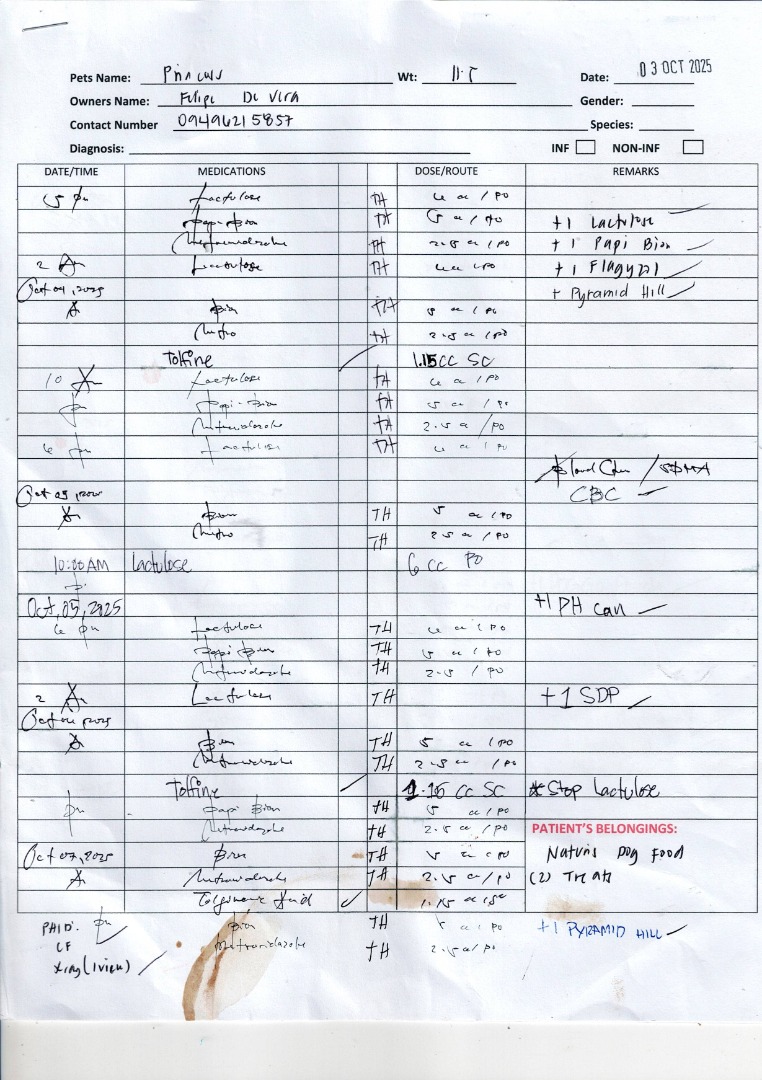 Pets Name: Princess Wt: 11.5 Date: 03 OCT 2025
Owners Name: Felipe De Vera Gender:
Contact Number 09496215857 Species:
Diagnosis: INF NON-INF
DATE/TIME MEDICATIONS DOSE/ROUTE REMARKS
5 pm Lactulose TH cc / PO
Papi-Bion TH 5 cc / PO +1 Lactulose
Metronidazole TH 2.5 cc / PO +1 Papi Bion
2 Lactulose TH cc / PO +1 Flagyl
Oct 04, 2025 + Pyramid Hill
Bion TH 5 cc / PO
Metro TH 2.5 cc / PO
Tolfine 1.15cc SC
10 Lactulose TH cc / PO
pm Papi-Bion TH 5 cc / PO
Metronidazole TH 2.5 cc / PO
6 pm Lactulose TH cc / PO
Blood Chem / SDMA
Oct 05, CBC
Bion TH 5 cc / PO
Metro TH 2.5 cc / PO
10:00AM Lactulose 6 cc PO
Oct, 05, 2025 +1 PH can
6 pm Lactulose TH cc / PO
Papi Bion TH 5 cc / PO
Metronidazole TH 2.5 / PO
2 Lactulose TH +1 SDP
Oct 06 2025
Bion TH 5 cc / PO
Metronidazole TH 2.5 cc / PO
Tolfine 1.15 cc SC * Stop Lactulose
pm Papi Bion TH 5 cc / PO
Metronidazole TH 2.5 cc / PO PATIENT'S BELONGINGS:
Oct 07, 2025 Bion TH 5 cc / PO Dog Food
Metronidazole TH 2.5 cc / PO (2) Treats
1.15 cc
PAID: pm Bion TH 5 cc / PO +1 PYRAMID HILL
CF Metronidazole TH 2.5 cc / PO
Xray (1view)